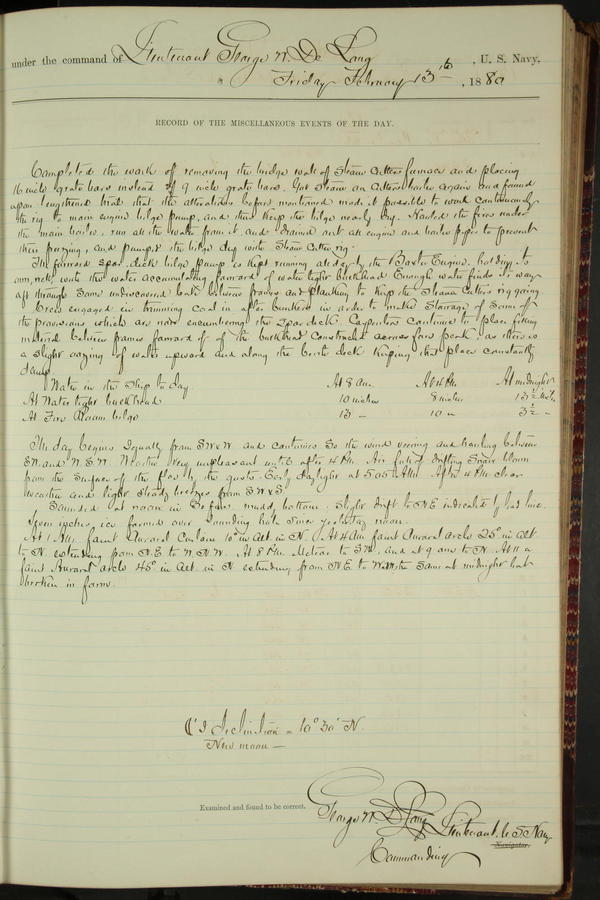 under the command of Lieutenant George W. De Long, U. S. Navy,
Friday February 13th, 1880
RECORD OF THE MISCELLANEOUS EVENTS OF THE DAY.
Completed the work of removing the bridge wall of Steam Cutters furnace and placing
16 inch grate bars instead of 9 inch grate bars. Got steam on Cutters boiler again and found
upon lengthened trial that the alterations before mentioned made it possible to work continuously
the rig to main engine bilge pump, and thus keep the bilge nearly dry. Hauled the fires under
the main boiler, run all the water from it, and drained out all engine and boiler pipes to prevent
their freezing, and pumped the bilge dry with Steam Cutter rig.
The forward spar deck bilge pump is kept running steadily by the Baxter Engine, holding its
own, with the water accumulating forward of water tight bulkhead. Enough water finds its way
aft through some undiscovered leak between frames and planking to keep the Steam Cutters rig going.
Crew engaged in trimming coal in after bunkers in order to make stowage of some of
the provisions which are now encumbering the spar deck. Carpenters continue to place filling
material between frames forward of the bulkhead construct across fore peak, as there is
a slight oozing of water upward and along the berth deck keeping that place constantly
damp.
Water in the Ship to day At 8 Am. At 4 Pm. At midnight
At Water tight bulkhead 10 inches 8 inches 13 ½ inches
At Fire Room bilge 13 " 10 " 3 ½ "
The day begins squally from SWxW. and continues so the wind veering and hauling between
SW. and W.S.W. Weather very unpleasant until after 4 Pm. Air full of drifting snow blown
from the surface of the floe by the gusts. Early daylight at 5.05 AM. After 4 Pm. clear
weather and light steady breezes from SWxS.
Sounded at noon in fms, muddy bottom. Slight drift to NE indicated by lead line.
Seven inches ice formed over sounding hole since yesterday noon.
At 1 AM. faint Auroral Curtain 10° in alt in N. At 4 Am faint Auroral arch 25° in alt
to N. extending from N.E. to W.N.W. At 8 Pm. Meteor to and at 9 one to N. At 11 a
faint Auroral arch 45° in alt. in N extending from NE to the same at midnight but
broken in form.
☾'s declination = 10° 30' N.
New moon —
Examined and found to be correct.
George W. De Long Lieutenant, U S Navy
Navigator.
Commanding